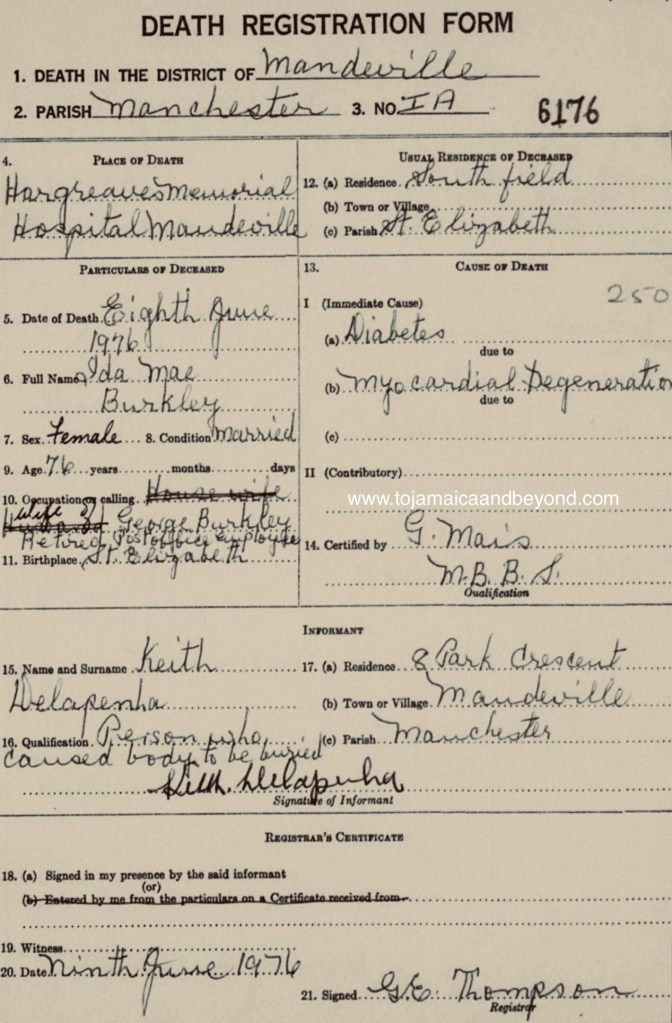 DEATH REGISTRATION FORM
1. DEATH IN THE DISTRICT OF Mandeville
2. PARISH Manchester 3. NO. IA 6176
4. PLACE OF DEATH
Hargreaves Memorial
Hospital Mandeville
USUAL RESIDENCE OF DECEASED
12. (a) Residence. South field
(b) Town or Village
(c) Parish St. Elizabeth
PARTICULARS OF DECEASED
5. Date of Death Eighth June
1976
6. Full Name Ida Mae
Burkley
7. Sex. Female 8. Condition married
9. Age 76 years months days
10. Occupation or calling. House wife
wife of
Husband George Burkley
Retired Post office employee
11. Birthplace. St. Elizabeth
13. CAUSE OF DEATH
250
I (Immediate Cause)
(a) Diabetes
due to
(b) Myocardial Degeneration
due to
(c)
II (Contributory)
www.tojamaicaandbeyond.com
14. Certified by G. Mais
M.B.B.S.
Qualification
INFORMANT
15. Name and Surname Keith
Delapenha
16. Qualification. Person who
caused body to be buried
Keith. Delapenha
Signature of Informant
17. (a) Residence 8 Park Crescent
(b) Town or Village. Mandeville
(c) Parish Manchester
REGISTRAR'S CERTIFICATE
18. (a) Signed in my presence by the said informant
(or)
(b) Entered by me from the particulars on a Certificate received from
19. Witness
20. Date Ninth June 1976
21. Signed G.E. Thompson
Registrar